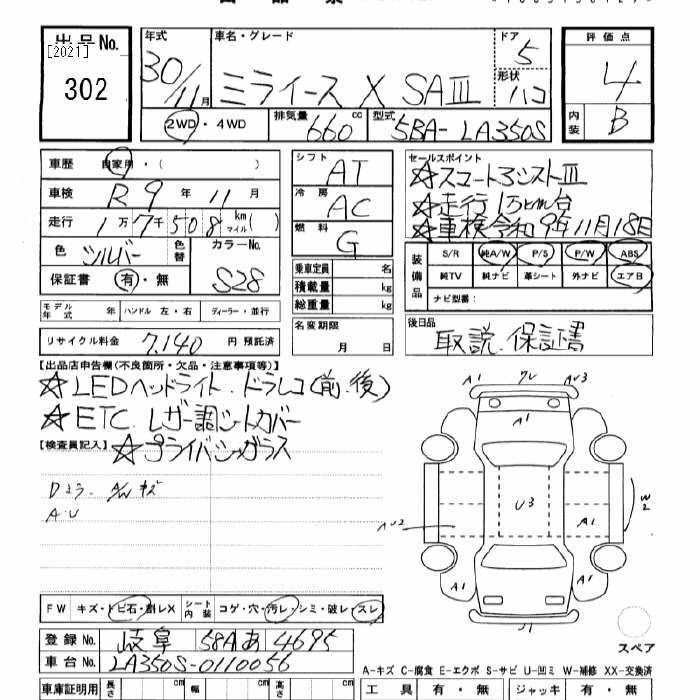 出品No.
[2021]
302
年式 30/11月
車名・グレード
ミライース X SAⅢ
ドア 5
形状 ハコ
評価点
4
内装 B
2WD・4WD
排気量 660 cc
型式 5BA-LA350S
車歴 自家用・( )
車検 R9年11月
走行 1万7千508 km マイル( )
色 シルバー
色替
カラーNo. S28
保証書 有・無
モデル年式 年
ハンドル 左・右
ディーラー・並行
リサイクル料金 7,140 円 預託済
シフト AT
冷房 AC
燃料 G
乗車定員 名
積載量 kg
総重量 kg
名変期限
月 日
セールスポイント
☆スマートアシストⅢ
☆走行1万km台
☆車検令和9年11月18日
装備品
S/R 純A/W P/S P/W ABS
純TV 純ナビ 革シート 外ナビ エアB
ナビ型番:
後日品
取説、保証書
【出品店申告欄(不良箇所・欠品・注意事項等)】
☆LEDヘッドライト.ドラレコ(前.後)
☆ETC.レザー調シートカバー
【検査員記入】
☆プライバシーガラス
Dミラー. A/W キズ
A.U
FW キズ・トビ石・割レX
シート内装 コゲ・穴・汚レ・シミ・破レ・スレ
登録No. 岐阜 58Aあ4695
車台No. LA350S-0110056
車庫証明用 長さ cm 幅 cm 高さ cm
A1
AU3
A1
U3
AU2
A1
W2
A1
A1
スペア
A-キズ C-腐食 E-エクボ S-サビ U-凹ミ W-補修 XX-交換済
工具 有・無 ジャッキ 有・無